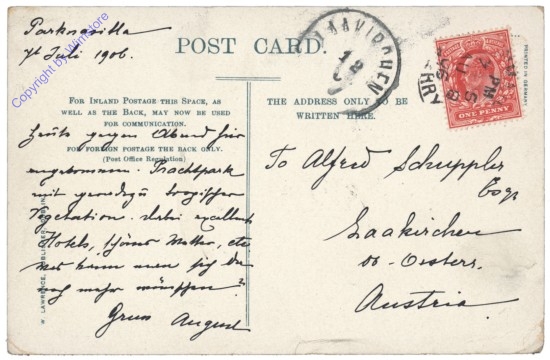 Parknasilla
7t Juli 1906.
POST CARD.
LAAKIRCHEN
PRINTED IN GERMANY
ONE PENNY
FOR INLAND POSTAGE THIS SPACE, AS
WELL AS THE BACK, MAY NOW BE USED
FOR COMMUNICATION.
FOR FOREIGN POSTAGE THE BACK ONLY.
(Post Office Regulation)
THE ADDRESS ONLY TO BE
WRITTEN HERE.
Heute gegen Abend hier
angekommen. Prachtpark
mit geradezu tropischer
Vegetation. dabei excellente
Hotels, schönes Wetter, etc
was kann man sich da
noch mehr wünschen?
Gruss August
To Alfred Schuppler
Esqr
Laakirchen
Ob-Oesterr.
Austria
W. LAWRENCE, PUBLISHER, DUBLIN
Copyright by Wimstore